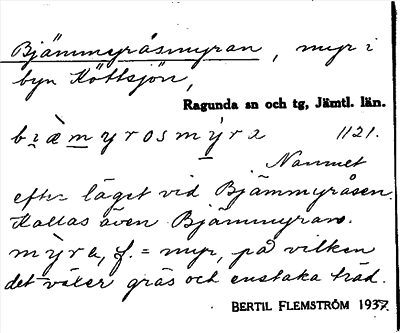 Bjämmyråsmyran, myr i
byn Köttsjön,
Ragunda sn och tg, Jämtl. län.
biämyrosmýra 1121.
Namnet
efter läget vid Bjämmyråsen.
Kallas även Bjämmyran.
mýra, f. = myr, på vilken
det växer gräs och enstaka träd.
BERTIL FLEMSTRÖM 1937.